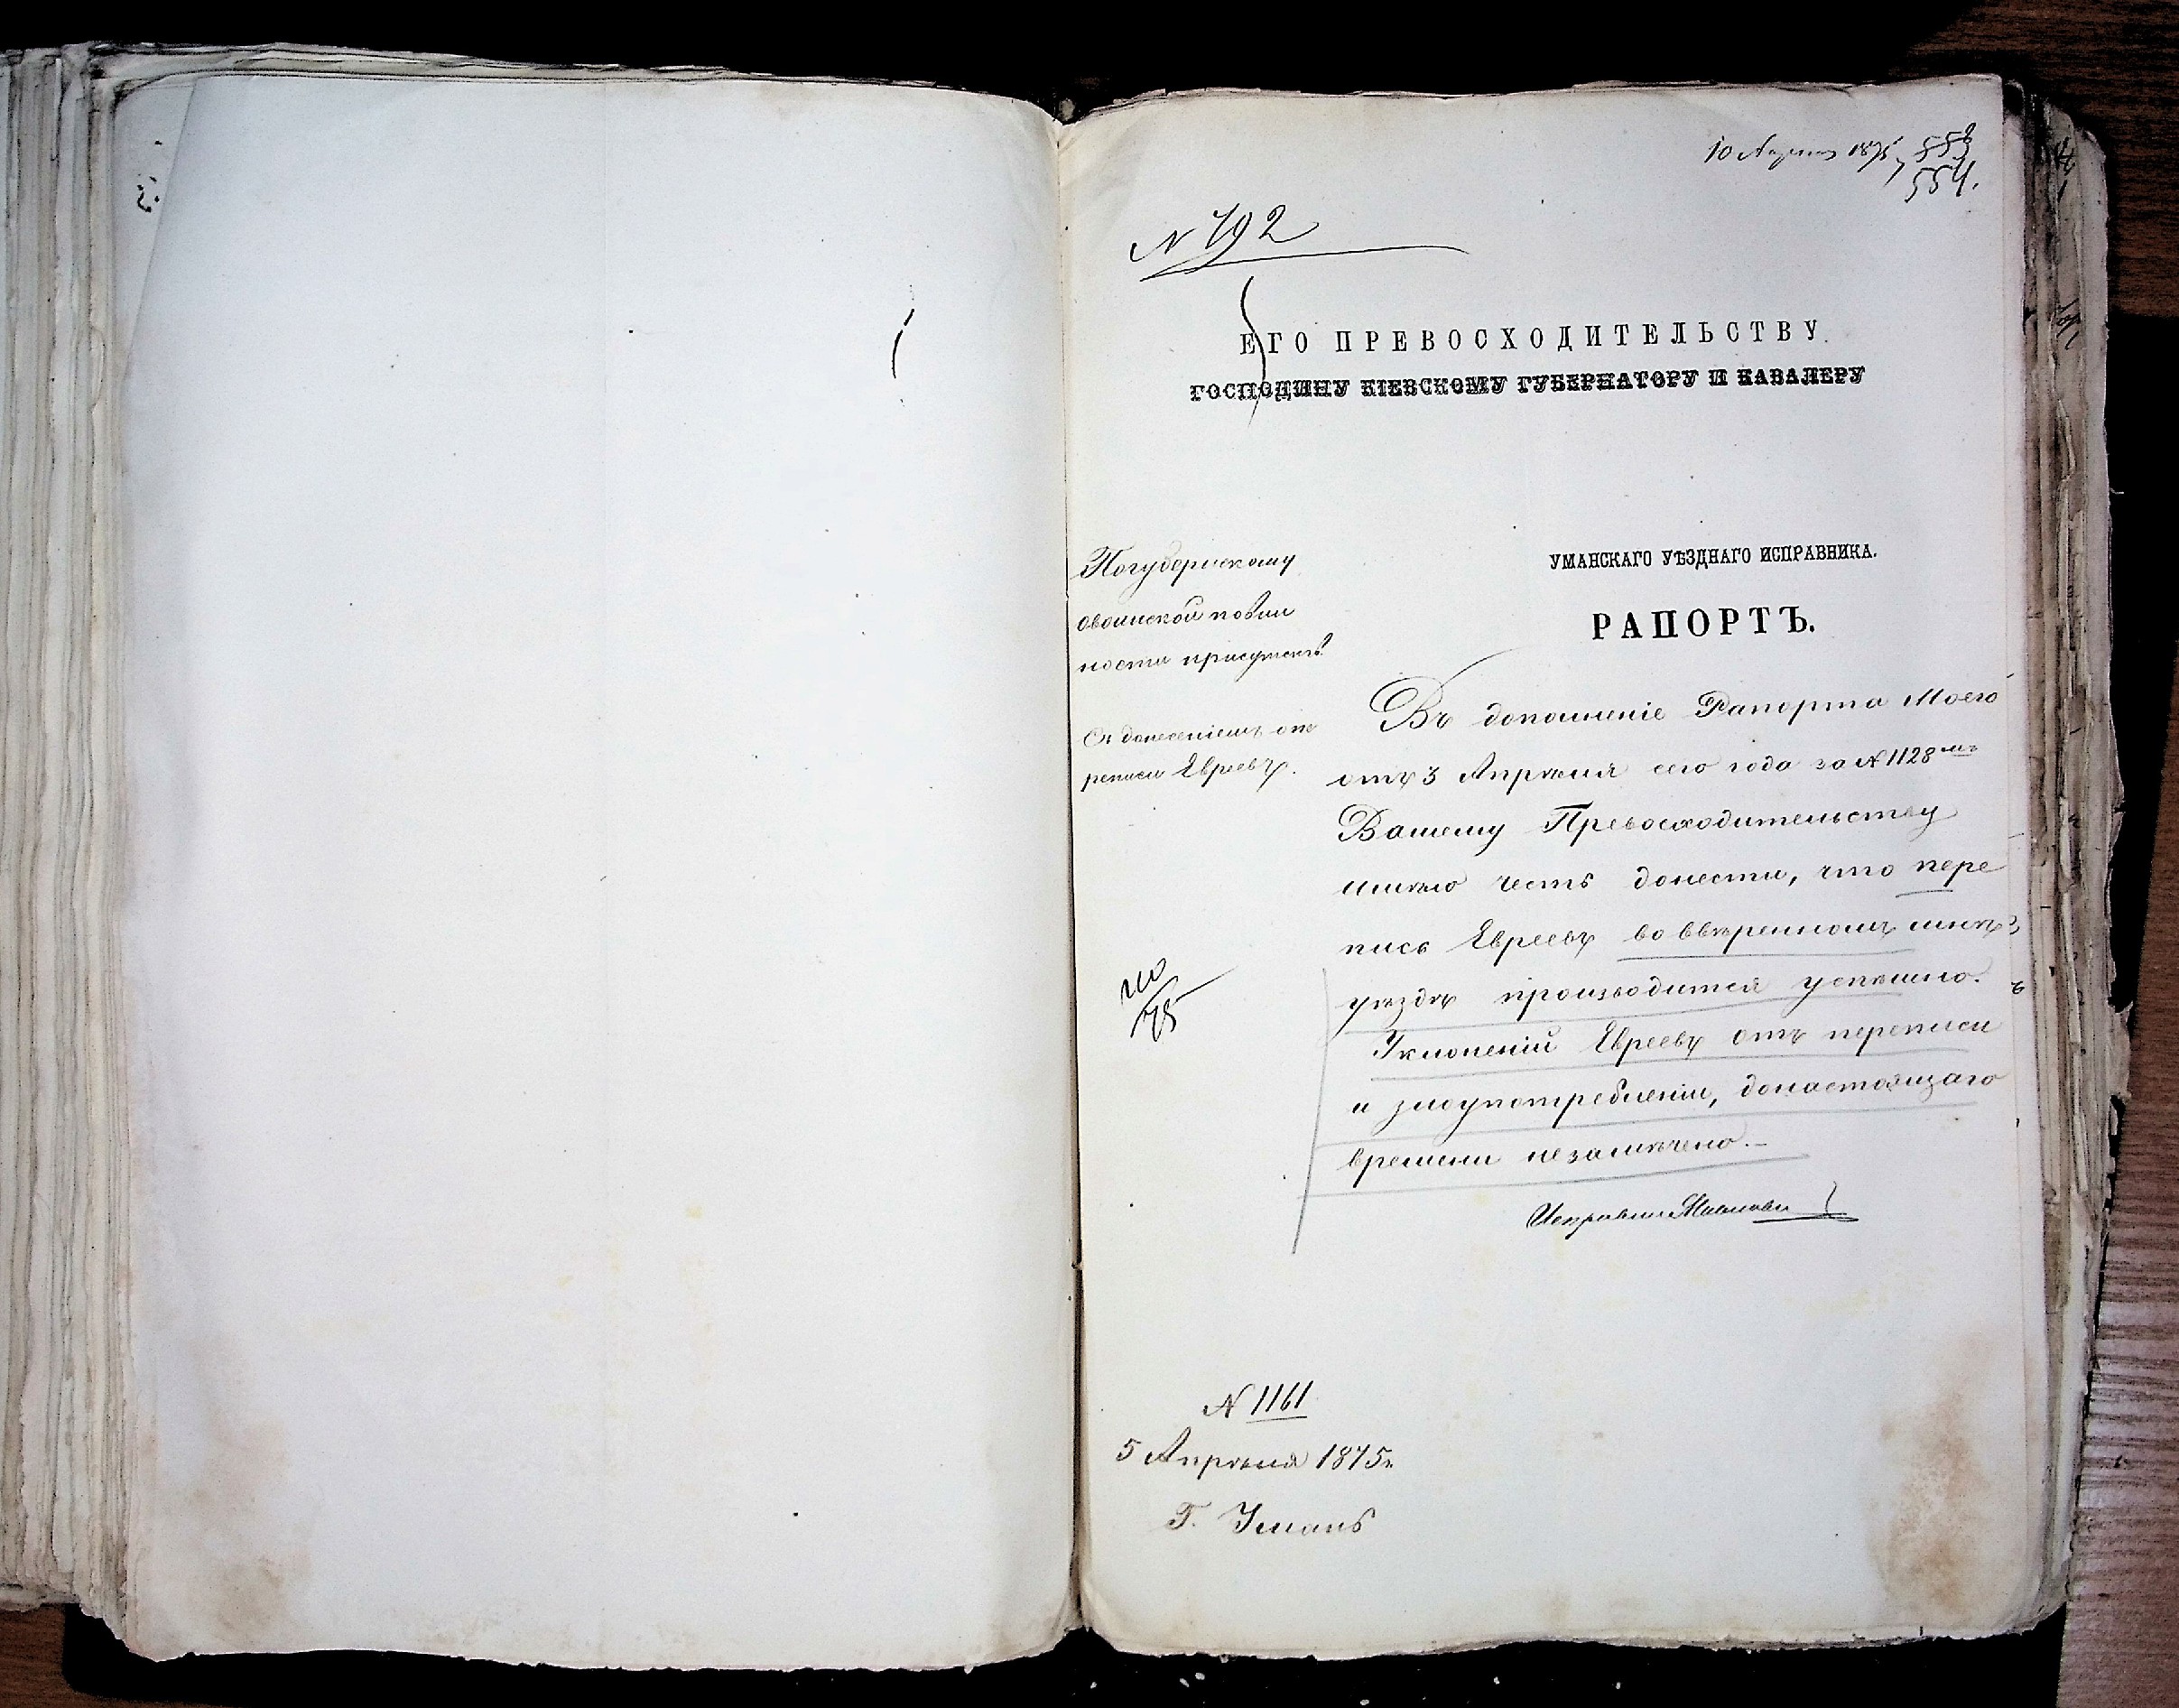 10 Апреля 1875
553
554.
N 792
ЕГО ПРЕВОСХОДИТЕЛЬСТВУ
ГОСПОДИНУ КІЕВСКОМУ ГУБЕРНАТОРУ И КАВАЛЕРУ
Погубернскому
овоинской повин
ности присутств.
Съ донесеніемъ опе
реписи Евреевъ.
УМАНСКАГО УѢЗДНАГО ИСПРАВНИКА.
РАПОРТЪ.
Въ дополненіе Рапорта Моего
отъ 3 Апрѣля сего года за N 1128мъ
Вашему Превосходительству
имѣю честь донести, что пере
пись Евреевъ во ввѣренномъ мнѣ
уѣздѣ производится успѣшно.
Уклоненій Евреевъ отъ переписи
и злоупотребленій, донастоящаго
времени незамѣчено.-
Исправникъ
N 1161
5 Апрѣля 1875г.
Г. Умань